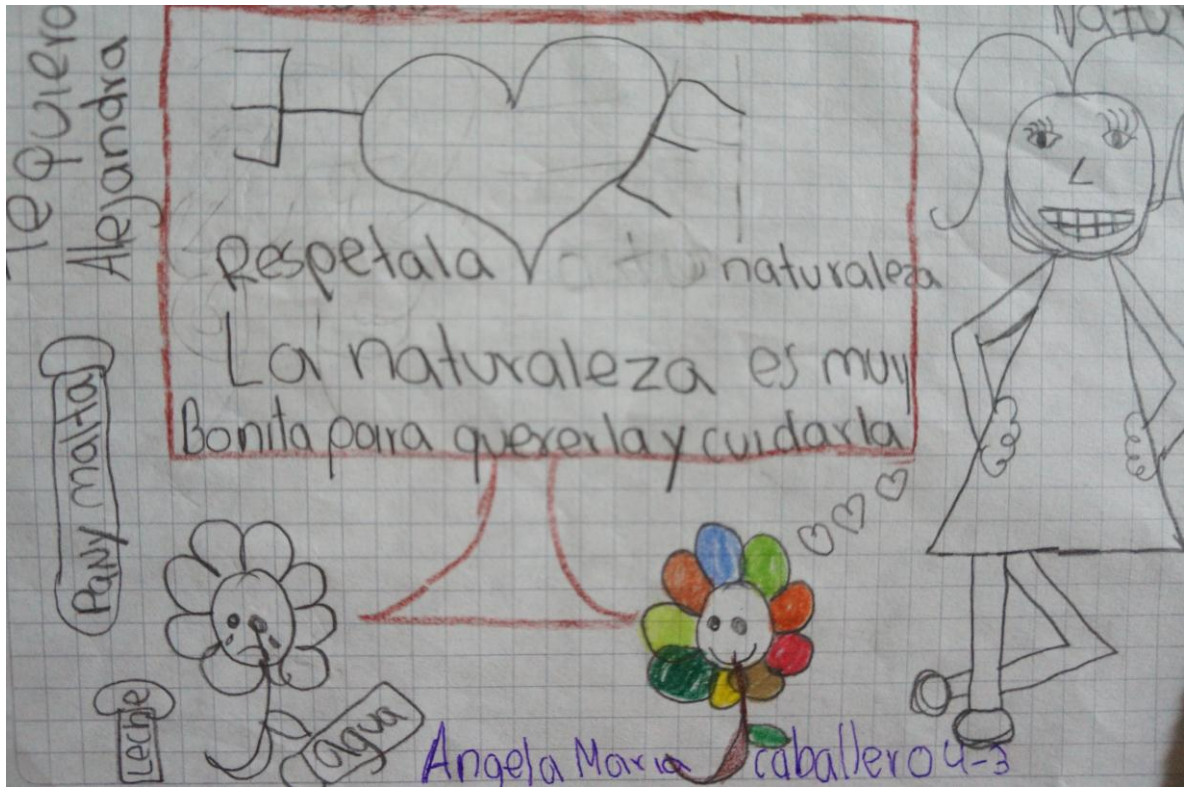 Te Quiero
Alejandra
Respetala
naturaleza
La naturaleza es muy
Bonita para quererla y cuidarla
Pan y malta
Leche
agua
Angela Maria caballero 4-3